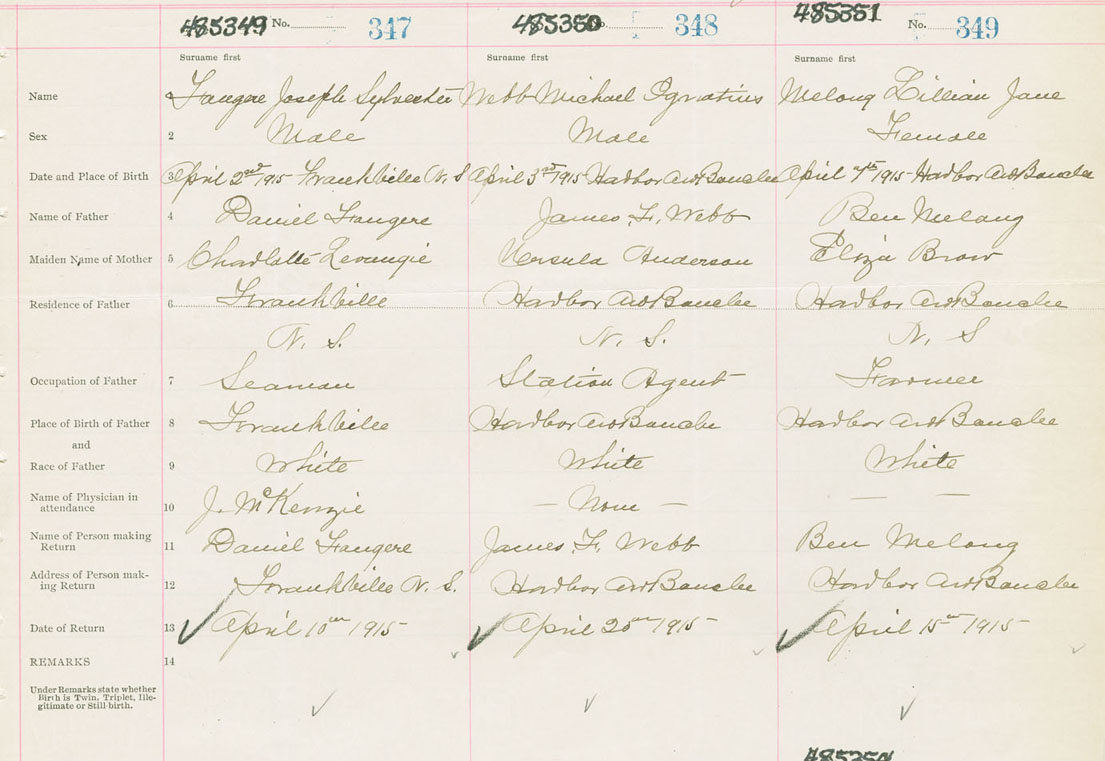 485349 No. 347 485350 No. 348 485351 No. 349
Surname first Surname first Surname first
Name Fangere Joseph Sylvester Webb Michael Ignatius Melong Lillian Jane
Sex 2 Male Male Female
Date and Place of Birth 3 April 2nd 1915 Frankville N. S April 3rd 1915 Harbor Au Bouche April 7th 1915 Harbor Au Bouche
Name of Father 4 Daniel Fangere James F. Webb Ben Melong
Maiden Name of Mother 5 Charlotte Levangie Ursula Anderson Eliza Brow
Residence of Father 6 Frankville Harbor Au Bouche Harbor Au Bouche
N. S. N. S. N. S
Occupation of Father 7 Seaman Station Agent Farmer
Place of Birth of Father 8 Frankville Harbor Au Bouche Harbor Au Bouche
and
Race of Father 9 White White White
Name of Physician in
attendance 10 J. McKenzie — None — — —
Name of Person making
Return 11 Daniel Fangere James F. Webb Ben Melong
Address of Person mak-
ing Return 12 Frankville N. S. Harbor Au Bouche Harbor Au Bouche
Date of Return 13 April 10th 1915 April 20th 1915 April 15th 1915
REMARKS 14
Under Remarks state whether
Birth is Twin, Triplet, Ille-
gitimate or Still-birth.